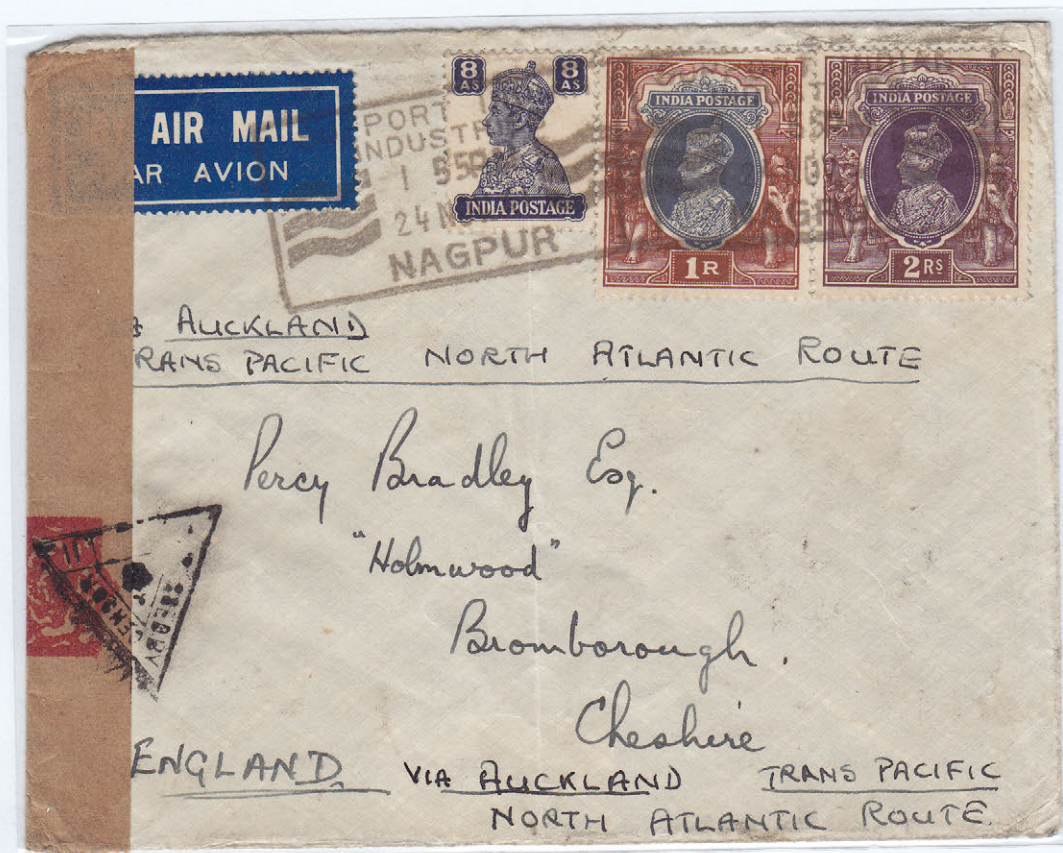 AIR MAIL
AR AVION
8 AS
8 AS
INDIA POSTAGE
INDIA POSTAGE
1 R
INDIA POSTAGE
2 RS
PORT
INDUSTR
24 N
NAGPUR
AUCKLAND
RANS PACIFIC NORTH ATLANTIC ROUTE
Percy Bradley Esq.
"Holmwood"
Bromborough.
Cheshire
ENGLAND. VIA AUCKLAND TRANS PACIFIC
NORTH ATLANTIC ROUTE.